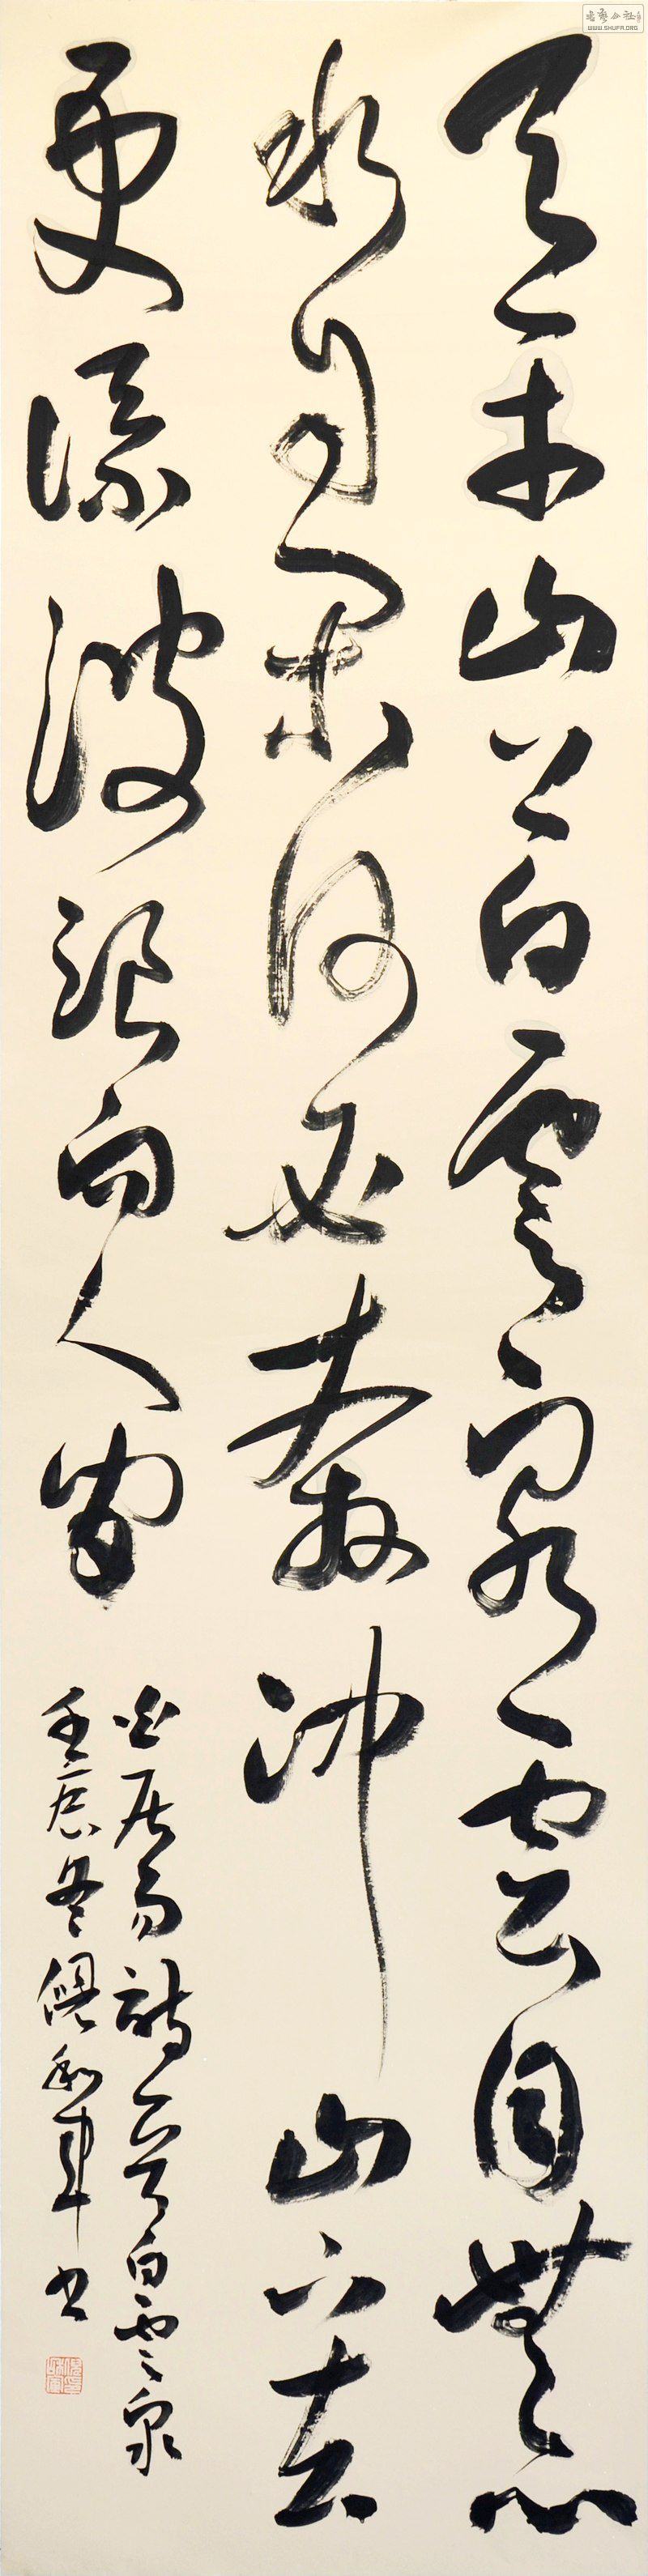 天平山上白雲泉雲自無心
水自閑何必奔沖山下去
更添波浪向人間
白居易詩一首白雲泉
壬辰冬倪和軍书
WWW.SHUFA.ORG